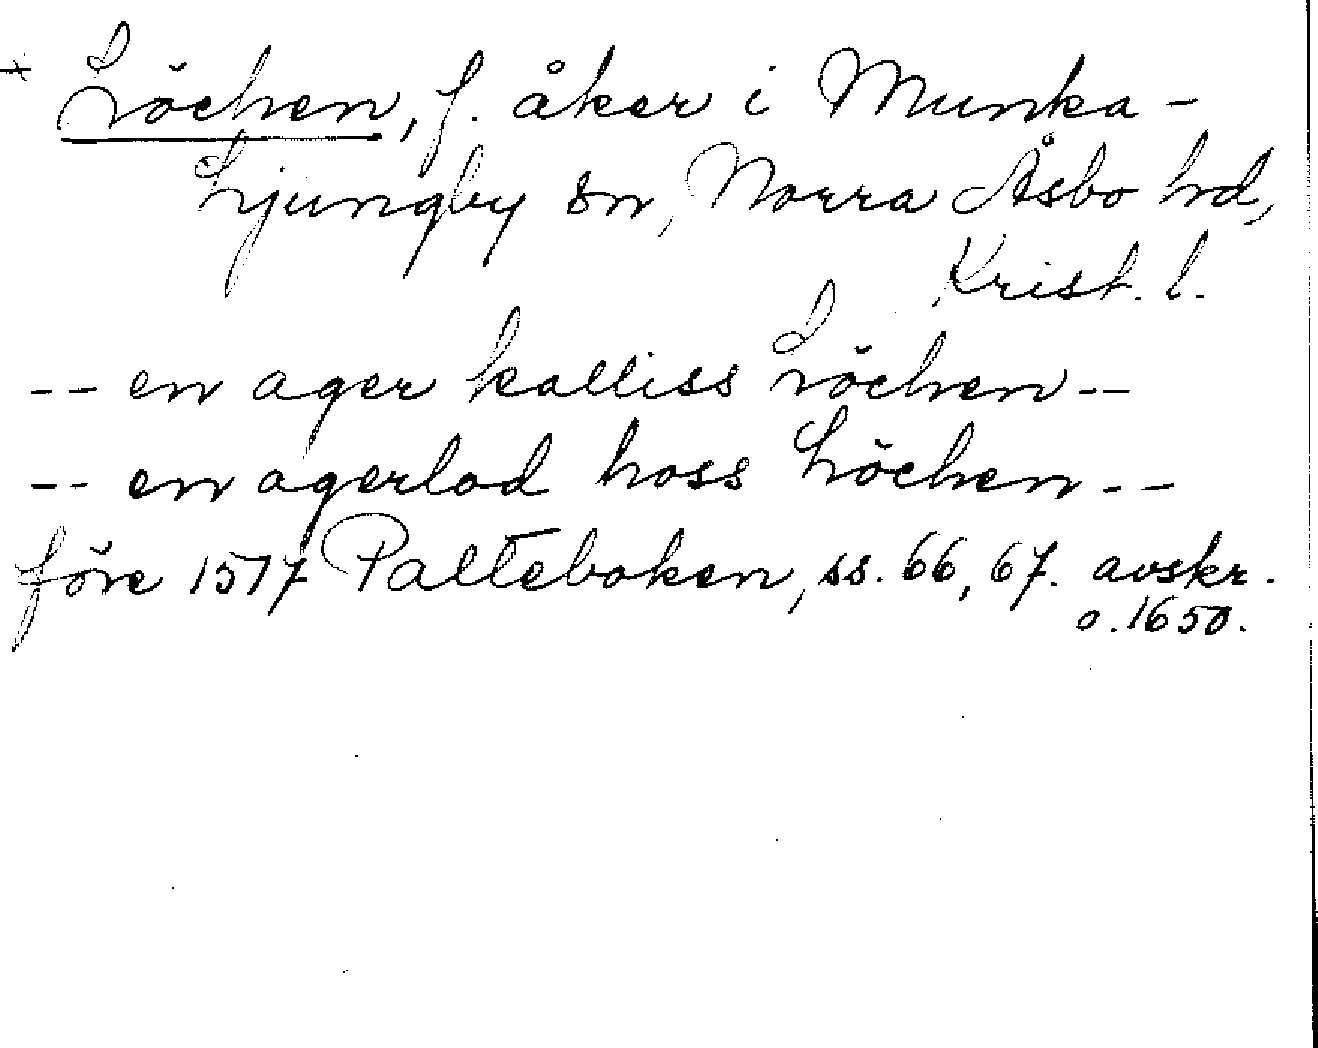 + Löchen, f. åker i Munka-
Ljungby sn, Norra Åsbo hd,
Krist. l.
-- en ager kalliss Löchen --
-- en agerlod hoss Löchen --
före 1517 Palteboken, ss. 66, 67. avskr.
o. 1650.